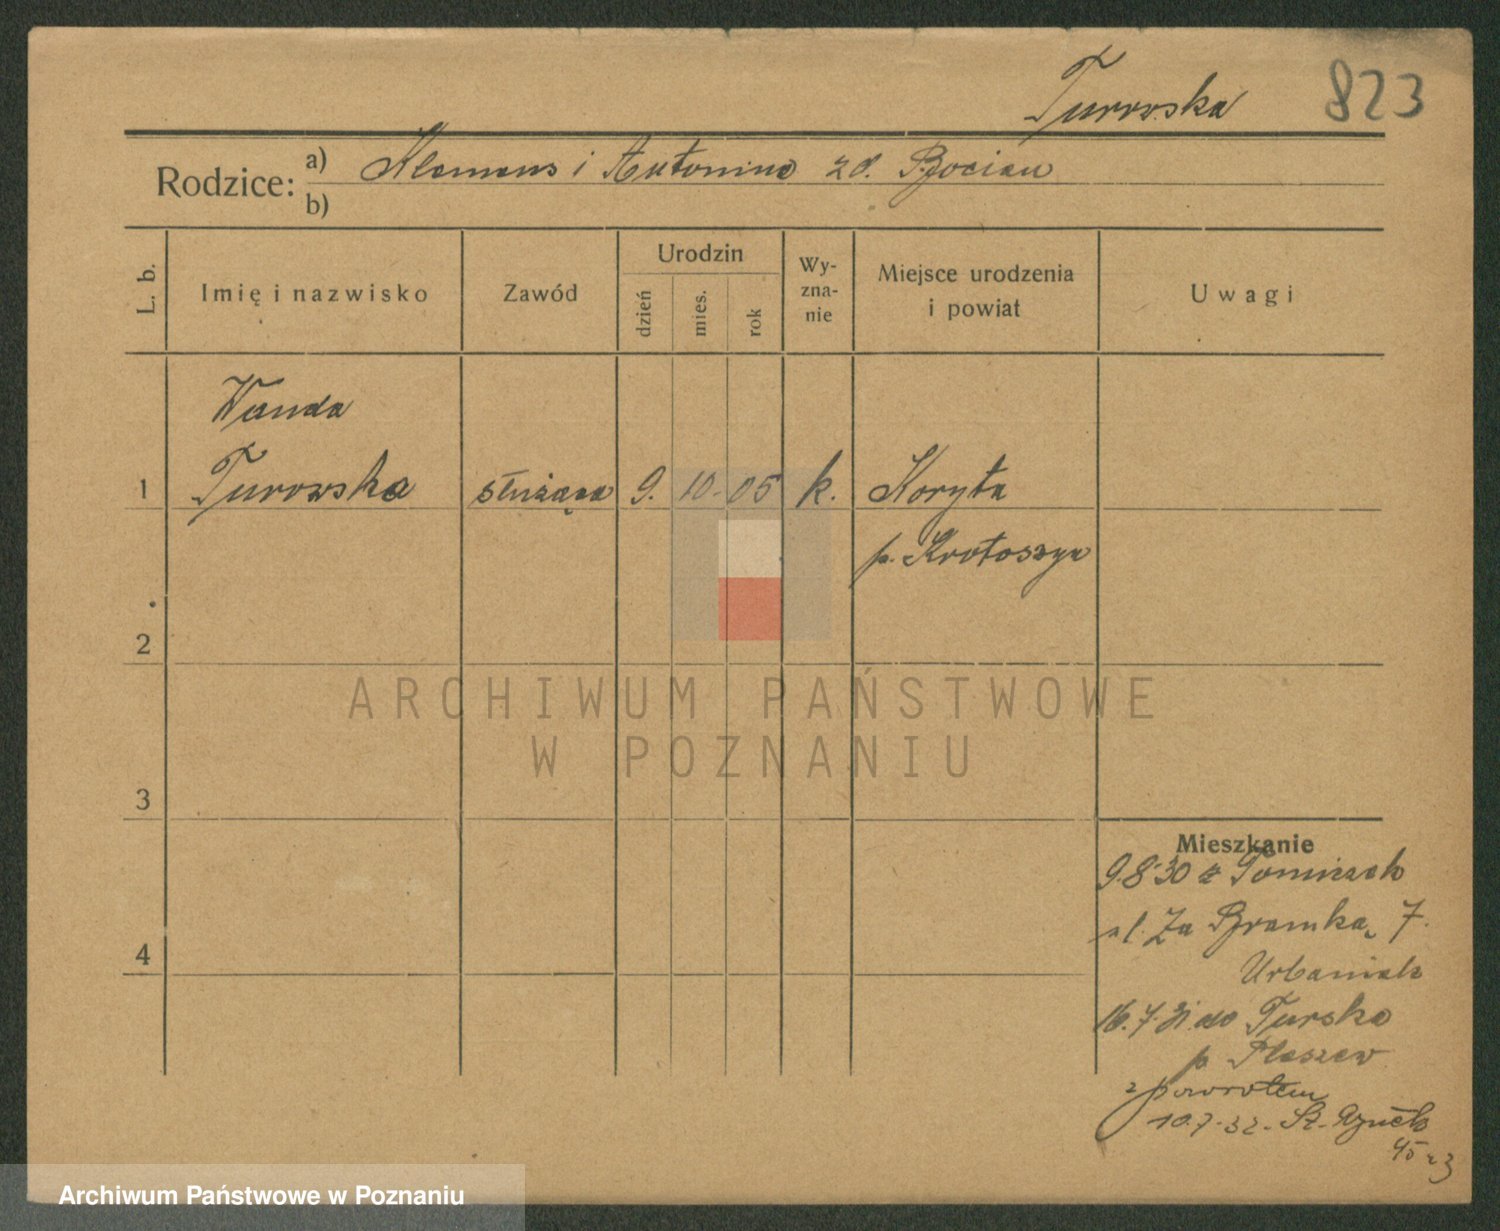 Turowska 823
Rodzice: a) Klemens i Antonina zd. Bocian
b)
L. b. Imię i nazwisko Zawód Urodzin dzień mies. rok Wy-zna-nie Miejsce urodzenia i powiat Uwagi
Wanda
1 Turowska służąca 9. 10. 05 k. Koryta
p. Krotoszyn
2
3
4
Mieszkanie
9.8.30 z Tomiczek
ul. Za Bramką 7.
Urbaniak
16.7.31 do Turska
p Pleszew
z powrotem
10.7.32. St. Rynek
45
ARCHIWUM PAŃSTWOWE
W POZNANIU
Archiwum Państwowe w Poznaniu